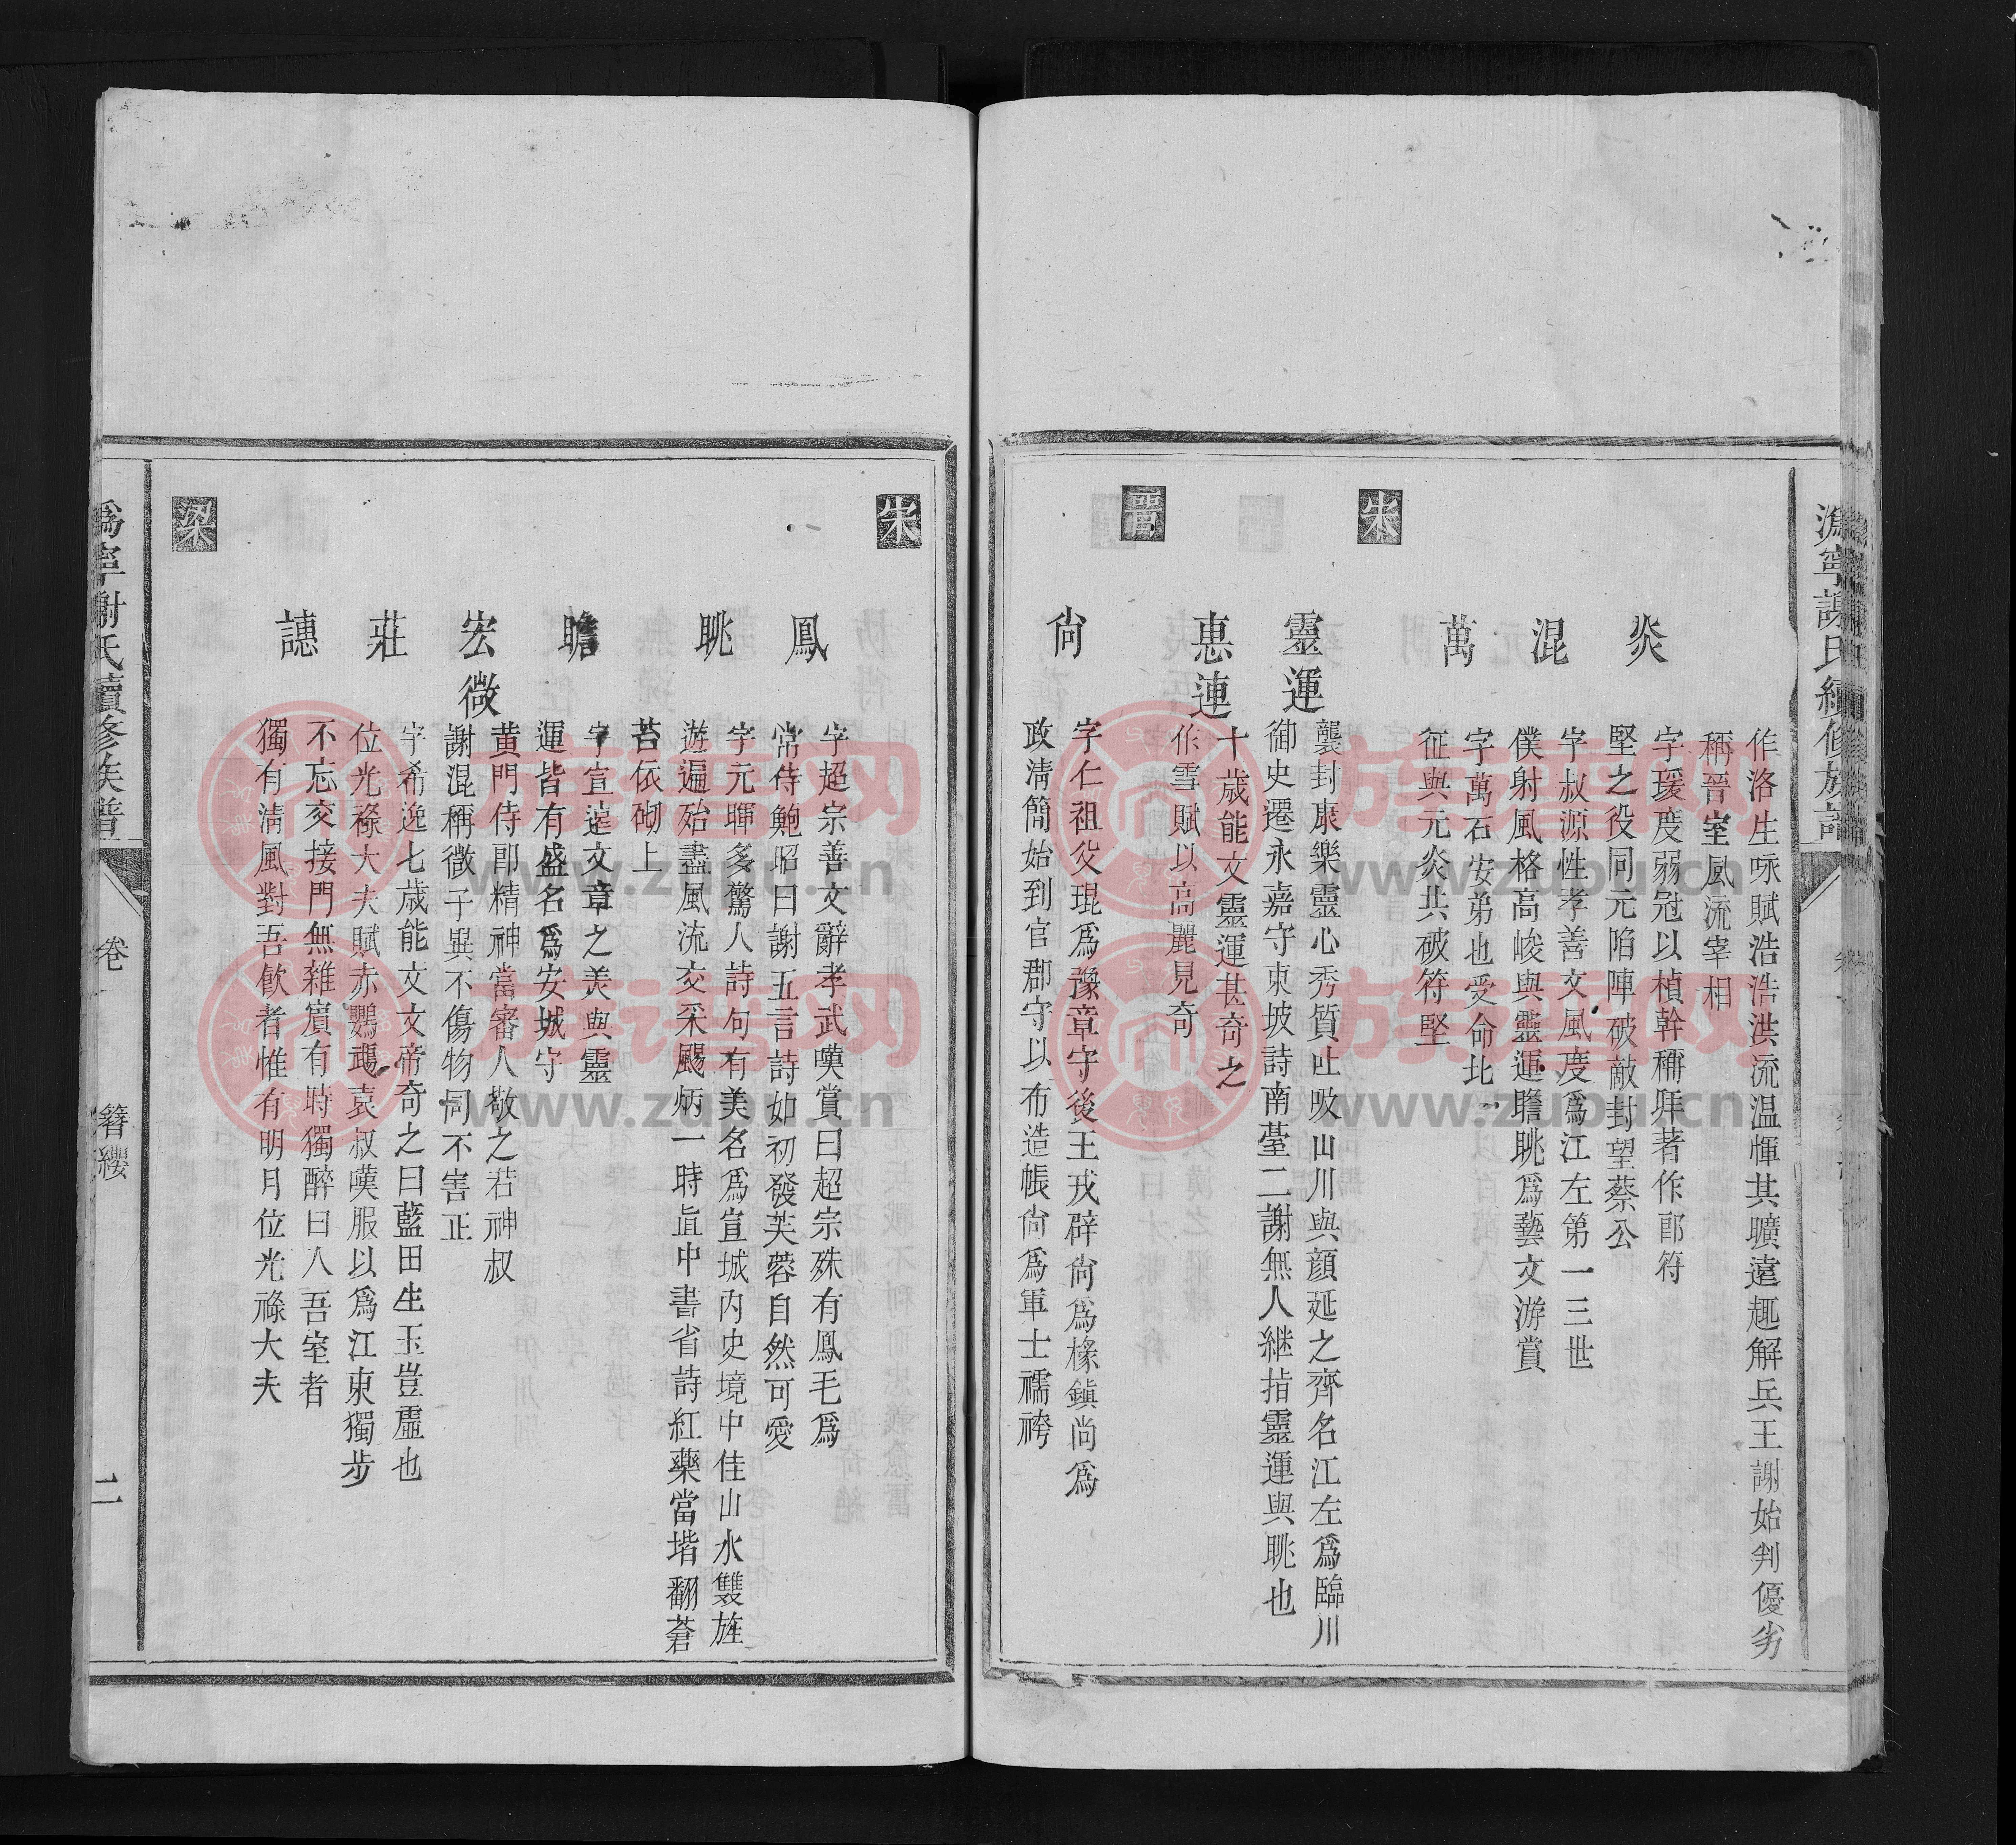 溈寧謝氏續修族譜
作洛生咏賦浩浩洪流温惲其曠遠趣解兵王謝始判優劣
稱晉室風流宰相
炎
字瑗度弱冠以楨幹稱拜著作郎符
堅之役同元陷陣破敵封望蔡公
混
字叔源性孝善文風度爲江左第一三世
僕射風格高峻與靈運瞻眺爲藝文游賞
萬
字萬石安弟也受命北
征與元炎共破符堅
宋
靈運
襲封康樂靈心秀質吐吸山川與顔延之齊名江左爲臨川
御史遷永嘉守東坡詩南臺二謝無人継指靈運與眺也
惠連
十歳能文靈運甚奇之
作雪賦以高麗見奇
晋
尙
字仁祖父琨爲豫章守後王戎辟尙爲椽鎮尚爲
政清簡始到官郡守以布造帳尙爲軍士襦袴
宋
鳳
字超宗善文辭孝武嘆賞曰超宗殊有鳳毛爲
常侍鮑昭曰謝五言詩如初發芙蓉自然可愛
眺
字元暉多驚人詩句有美名爲宣城内史境中佳山水雙旌
遊遍殆盡風流交采颺炳一時直中書省詩紅藥當堦翻蒼
苔依砌上
瞻
字宣遠文章之美與靈
運皆有盛名爲安城守
宏微
黄門侍郎精神當審人敬之若神叔
謝混稱微子異不傷物同不害正
莊
字希逸七歳能文文帝奇之曰藍田生玉豈虛也
位光祿大夫賦赤鸚鵡袁叔嘆服以爲江東獨步
譓
不忘交接門無雜賓有時獨醉曰入吾室者
獨有清風對吾飲者惟有明月位光祿大夫
梁
溈寧謝氏續修族譜
卷一
簪纓
二
族谱网
www.zupu.cn
族谱网
www.zupu.cn
族谱网
www.zupu.cn
族谱网
www.zupu.cn